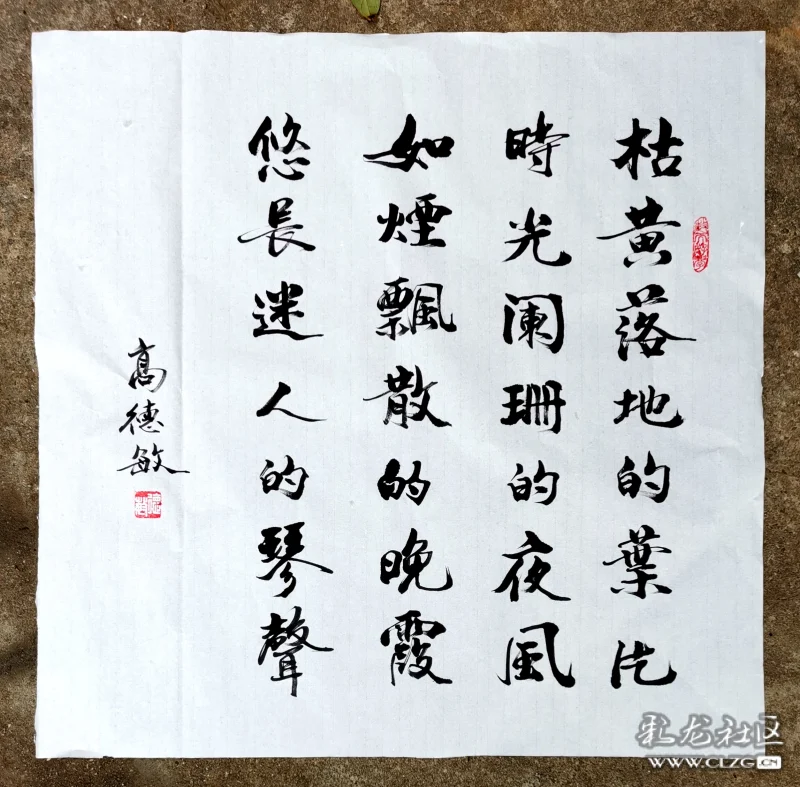 枯黄落地的葉片
時光阑珊的夜風
如煙飄散的晚霞
悠長迷人的琴聲
高德敏
彩龙社区
WWW.CLZG.CN